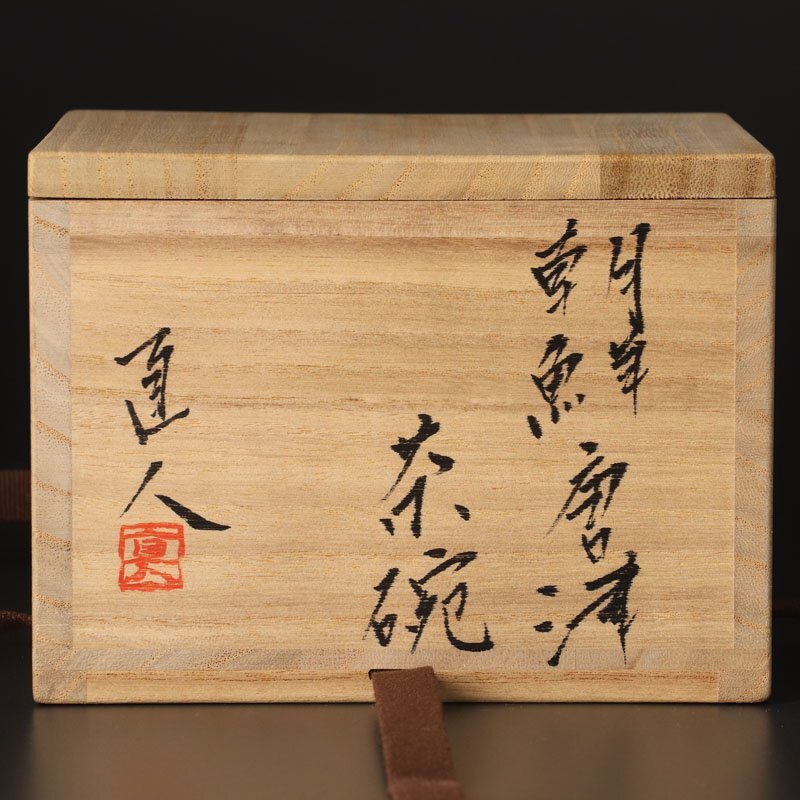 朝鮮唐津
茶碗
直人